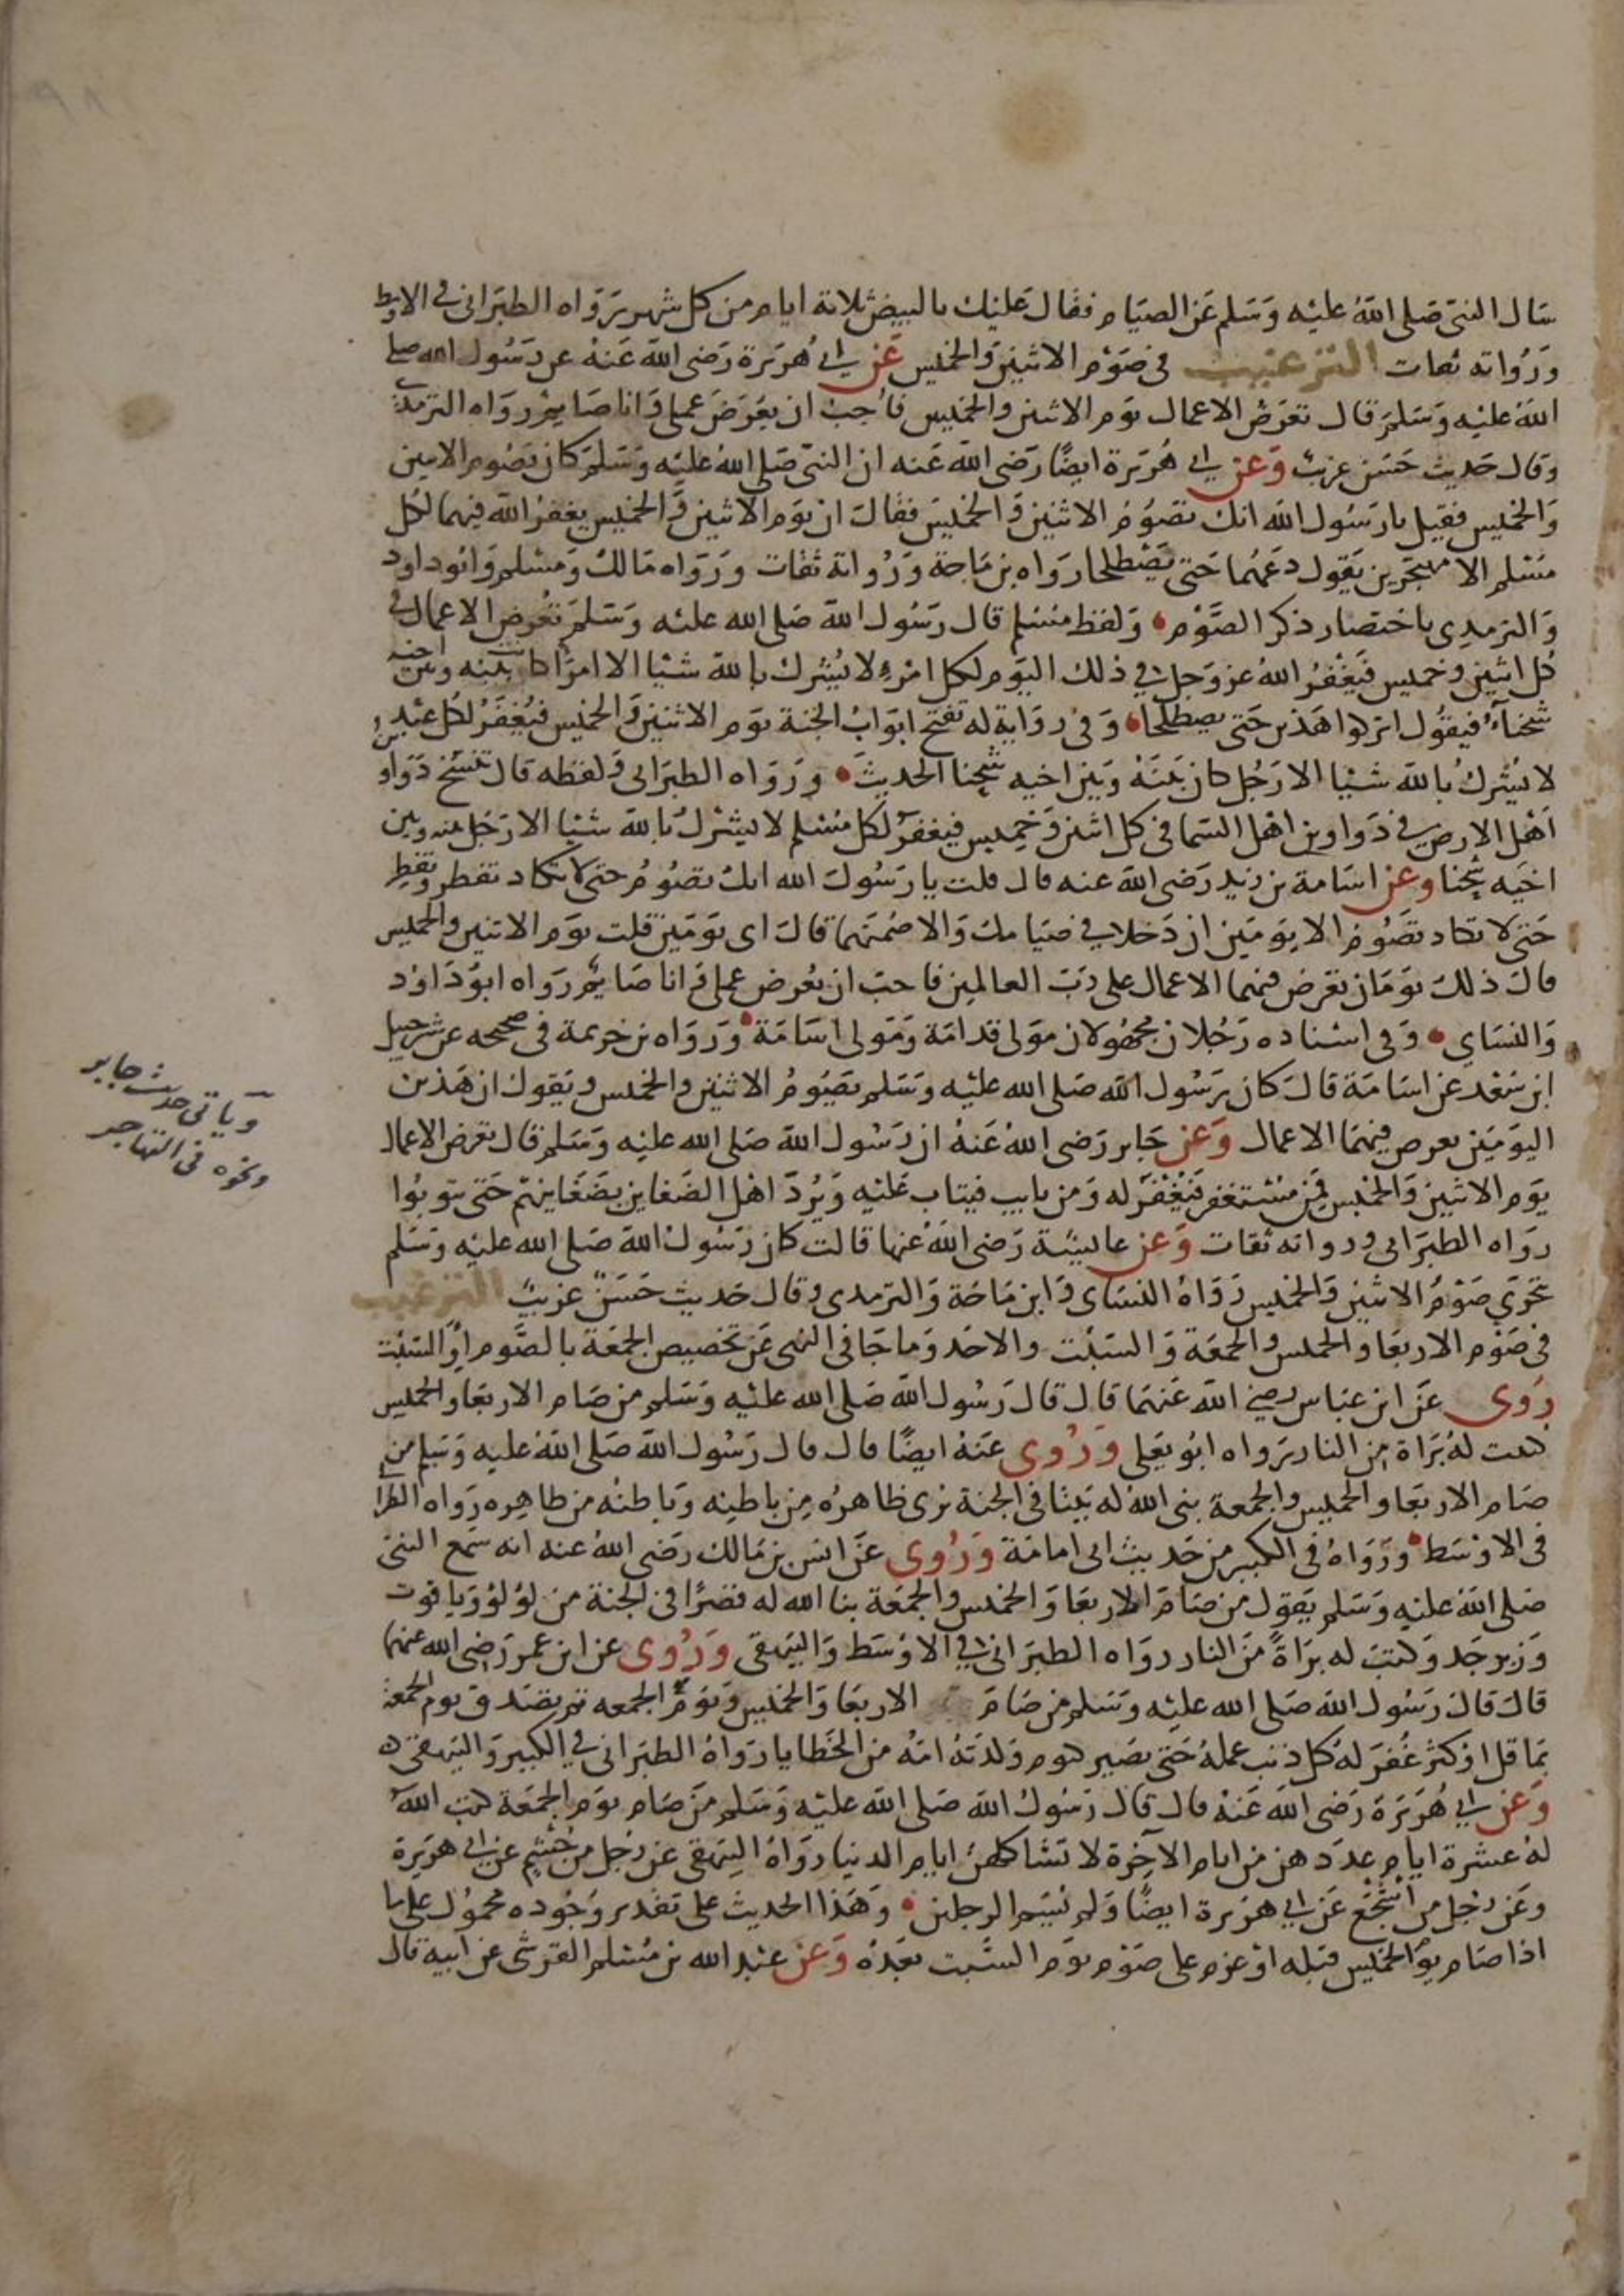 سَال النبى صَلى الله عليْه وَسَلم عَن الصيَام فقال عَليْك بالبيض ثلاثة ايام من كل شهر رَوَاه الطبَرانى فى الاوسط
وَرُواته ثقات الترغيب فى صَوْم الاثنين وَالخميس عَن ابى هُرَيرة رَضى الله عَنهُ عن رَسُول الله صلى
الله عليْه وَسَلم قال تعْرَض الاعمال يوَم الاثنين والخميس فاُحِب ان يعْرَضَ عملى وَانا صَايم رَوَاه الترمذى
وقال حَديث حَسَن غريب وَعن ابى هُرَيرة ايضًا رَضى الله عَنه ان النبى صَلى الله عليْه وَسَلم كان يَصُوم الاثنين
وَالخميس فقيل يا رَسُول الله انك تصُوْم الاثنين وَالخميْسَ فقال ان يوَم الاثنين وَالخميس يغفرُ الله فيهما لكل
مسْلم الا مهتجرين يَقول دَعهُما حَتى يَصْطلحا رَوَاه بن مَاجة وَرُواته ثقات وَرَوَاه مَالك وَمسْلم وَابُو داود
وَالترمدى باختصار ذكر الصَّوْم وَلفظ مسْلم قال رَسُول الله صَلى الله عليه وَسَلم تعْرض الاعمال فى
كُل اثنين وخميس فيَغْفرُ اللهُ عز وَجل فى ذلك اليَوم لكل امْرِءٍ لا يُشرك بالله شيْا الا امرًا كانت بينه وبَين اخيه
شحْنَاءُ فيقُول اتركوا هَذين حَتى يصطلحا وَفى روَاية له تفتح ابوَابُ الجنة يوَم الاثنين وَالخميس فيُغفَرُ لكل عَبْدٍ
لا يُشركُ بالله شيْا الا رَجُل كان بَيْنَهُ وَبَين اخيه شحْنا الحديث وَرَوَاه الطبَرانى وَلفظه قال تنسَخ دَوَاو
اَهْل الارض فى دَوَاوين اهْل السَما فى كل اثنين وَخميس فيغفر لكل مسْلم لا يشركُ بالله شيْا الا رَجُل بينه وبَين
اخيَه شحْنا وعن اسَامة بن زيد رَضى الله عنه قال قلت يا رَسُول الله انك تصُومُ حتى لا تكاد تفطر وتفطِر
حَتى لا تكاد تصُوم الا يوَمَين ان دَخلا فى صيَامك وَالا صُمتهما قال اى يَومَين قلت يوَم الاثنين والخميس
قال ذلك يوَمَان تعْرَض فيهما الاعمال على رَبّ العالمين فاحب ان يُعرض عملى وَانا صَايم رَوَاه ابُو دَاوُد
وَالنسَاى وَفى اسْناده رَجُلان مجهُولان مَوْلى قدامَة وَمَوْلى اسَامَة وَرَوَاه بن خزيمة فى صحيحه عن شرحبيل
ابن سَعْد عن اسَامَة قال كان رَسُول الله صَلى الله عليْه وَسَلم يَصُومُ الاثنين والخميس وَيَقول ان هَذين
اليَومَين تعرض فيْهمَا الاعمال وَعن جَابر رَضى اللهُ عَنهُ ان رَسُول الله صَلى الله عليه وَسَلم قال تعْرض الاعمال
يوَم الاثنين وَالخميس فمن مسْتغفر فيُغْفَرُ له وَمن تايب فيتاب عَليْه وَيُرَدّ اهْل الضغاين بضَغَاينهم حَتى يَتوبُوا
رَوَاه الطبَرانى ورواته ثقات وَعن عايشَة رَضى الله عنها قالت كان رَسُول الله صَلى الله عليْه وَسَلم
يتحَرّى صَوْمَ الاثنين وَالخميس رَوَاهُ النسَاى وَابن مَاجَة وَالترمدى وقال حَديث حَسَن غريبٌ الترغيب
فى صَوْم الاربعَا والخميس والجمعَة وَالسَبْت والاحَد وَما جَا فى النهى عَن تخصيص الجمْعَة بالصَّوم اوْ السَّبْت
رُوى عَن ابن عبَاس رضى الله عَنهمَا قال قال رَسُول الله صَلى الله عليْه وَسَلم من صَام الاربعَا والخميس
كتبت لهُ بَرَاة من النار رَوَاه ابُو يعْلى وَرُوى عَنهُ ايضًا قال قال رَسُول الله صَلى الله عليه وَسَلم من
صَام الاربعَا والخميس والجمعة بنى اللهُ له بيْتا فى الجنة يرى ظاهرُه مِن باطنِه وَباطنُه من ظاهِره رَواه الطبرا
فى الاوْسَط وَرَوَاهُ فى الكبير من حَديث ابى امامَة وَرُوى عَن انس بن مَالك رَضى اللهُ عنه انه سَمع النبى
صَلى الله عليْه وَسَلم يَقول من صَامَ الاربعَا وَالخميس والجمْعَة بنا الله له قصْرًا فى الجنة من لؤلؤ وَياقوت
وَزبرجَد وَكتبَ له بَرَاةً مَن النار رواه الطبَرانى فى الاوْسَط وَالبَيهقى وَرُوى عن ابن عمر رَضى الله عنهما
قال قال رَسُول الله صَلى الله عليْه وَسَلم من صَامَ الاربعَا وَالخميس وَيوَم الجمعه ثم تصَدق يوم الجمعة
بمَا قل اوْ كثرَ غُفرَ لهُ كل ذنب عملهُ حَتى يصَير كيوم وَلدَتهُ امُهُ من الخَطايا رَوَاهُ الطبَرانى فى الكبير وَالبَيهقى
وَعن ابى هُرَيرَة رَضى الله عَنهُ قال قال رَسُولُ الله صَلى الله عليْه وَسَلم مَن صَام يوَم الجمْعَة كتب اللهُ
لهُ عشرة ايام عدَدهن من ايام الآخِرة لا تشاكلهن ايام الدنيا رَوَاهُ البَيهقى عن رَجُل من جُشم عن ابى هريرة
وعَن رَجُل من اَشْجَعَ عَن ابى هرَيرة ايضًا وَلم يُسَم الرجلين وَهَذا الحديث على تقدير وُجُوده محمُول على ما
اذا صَام يوَم الخميس قبله اوْ عزم على صَوْم يوَم السَّبت بعَدهُ وَعن عبْد الله بن مسْلم القرشى عن ابيه قال
وياتى حديث جابر
ونحوه فى التهاجر